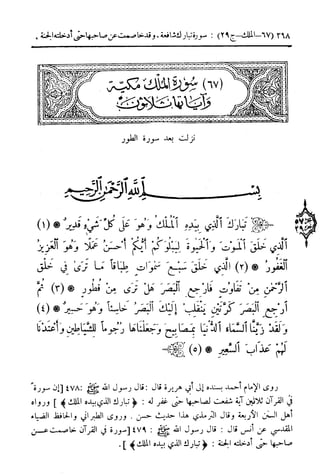 ٣٦٨ (٦٧-الملك-ج٢٩) : سورة تبارك شافعة . وقد خاصمت عن صاحبها حتى أدخلته الجنة .
(٦٧) سُورَةُ المُلكِ مَكيّة
وَآيَاتهَا ثَلَاثُونَ
نزلت بعد سورة الطور
بِسْمِ اللَّهِ الرَّحْمَٰنِ الرَّحِيمِ
تَبَارَكَ الَّذِي بِيَدِهِ الْمُلْكُ وَهُوَ عَلَىٰ كُلِّ شَيْءٍ قَدِيرٌ (١)
الَّذِي خَلَقَ الْمَوْتَ وَالْحَيَوٰةَ لِيَبْلُوَكُمْ أَيُّكُمْ أَحْسَنُ عَمَلًا وَهُوَ الْعَزِيزُ
الْغَفُورُ (٢) الَّذِي خَلَقَ سَبْعَ سَمَٰوَاتٍ طِبَاقًا مَا تَرَىٰ فِي خَلْقِ
الرَّحْمَٰنِ مِنْ تَفَاوُتٍ فَارْجِعِ الْبَصَرَ هَلْ تَرَىٰ مِنْ فُطُورٍ (٣) ثُمَّ
ارْجِعِ الْبَصَرَ كَرَّتَيْنِ يَنْقَلِبْ إِلَيْكَ الْبَصَرُ خَاسِئًا وَهُوَ حَسِيرٌ (٤)
وَلَقَدْ زَيَّنَّا السَّمَاءَ الدُّنْيَا بِمَصَابِيحَ وَجَعَلْنَاهَا رُجُومًا لِلشَّيَاطِينِ وَأَعْتَدْنَا
لَهُمْ عَذَابَ السَّعِيرِ (٥)
روى الإمام أحمد بسنده إلى أبي هريرة قال: قال رسول الله ﷺ: ٤٧٨ [إن سورة
في القرآن ثلاثين آية شفعت لصاحبها حتى غفر له : ﴿ تبارك الذي بيده الملك ﴾ ] ورواه
أهل السنن الأربعة وقال الترمذي هذا حديث حسن . وروى الطبراني والحافظ الضياء
المقدسي عن أنس قال : قال رسول الله ﷺ : ٤٧٩ [ سورة في القرآن خاصمت عن
صاحبها حتى أدخلته الجنة : ﴿ تبارك الذي بيده الملك ﴾ ] .